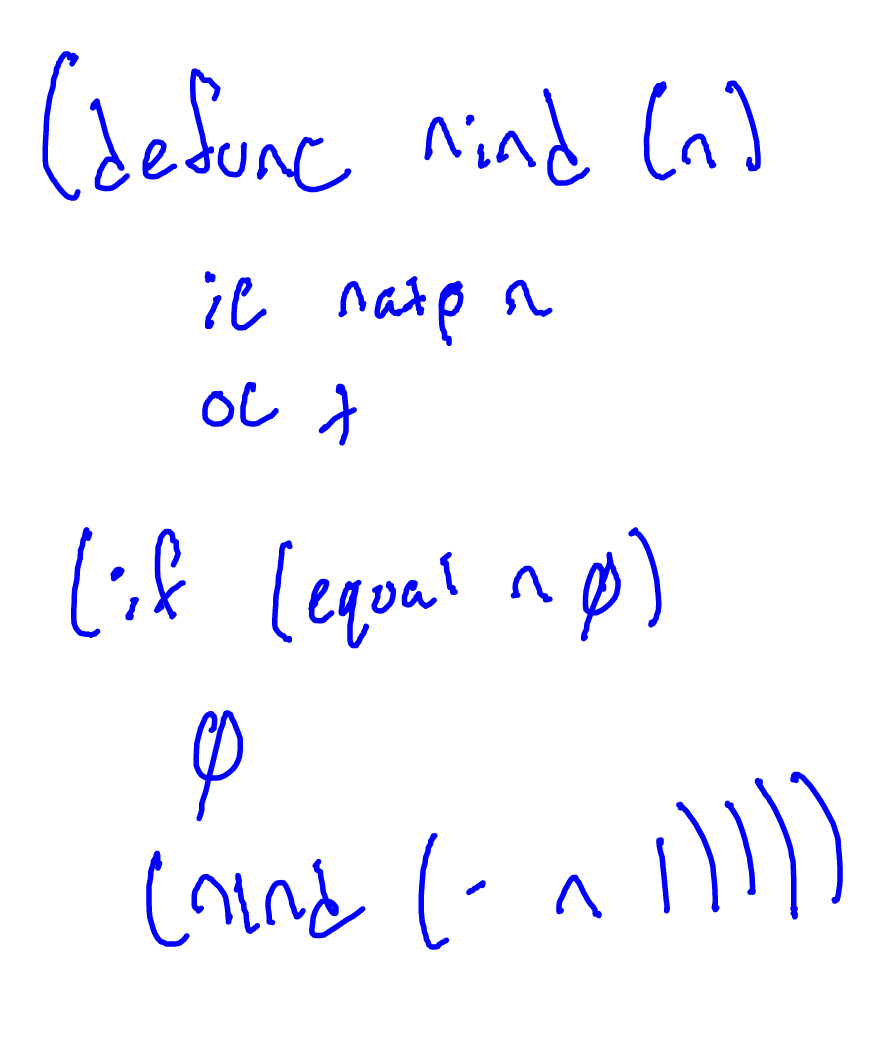 (defunc nind (n)
ic natp n
oc t
(if (equal n 0)
0
(nind (- n 1))))